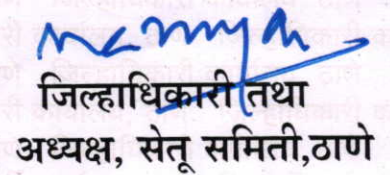 जिल्हाधिकारी तथा
अध्यक्ष, सेतू समिती,ठाणे